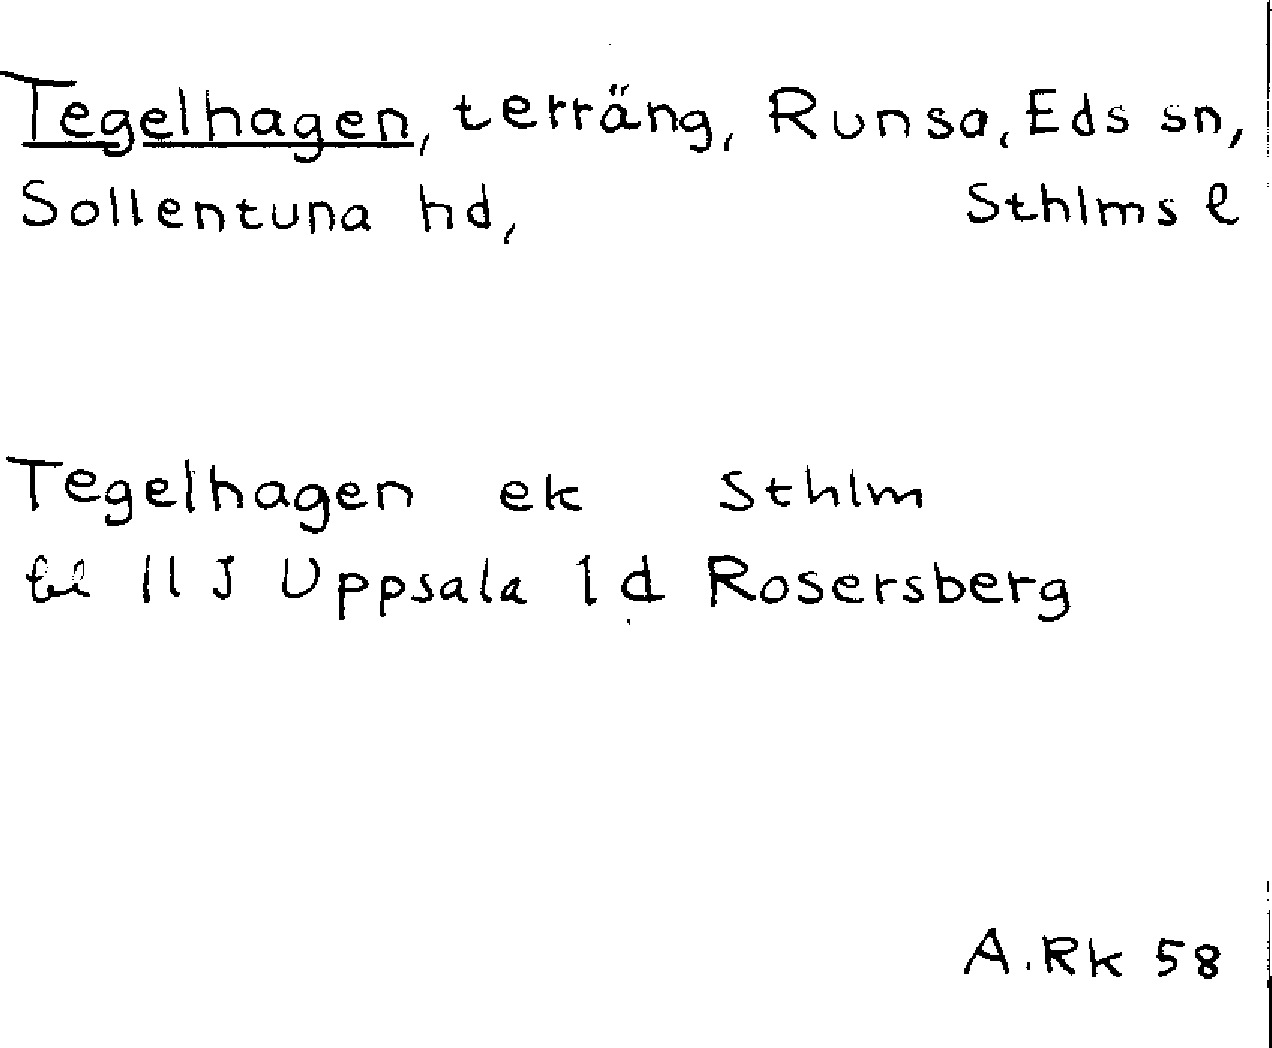 Tegelhagen, terräng, Runsa, Eds sn,
Sollentuna hd, Sthlms l
Tegelhagen ek Sthlm
bl 11 J Uppsala 1d Rosersberg
A.Rk 58